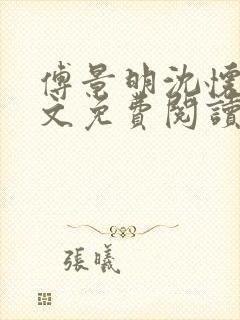 傅景明沈懷
文免費閱讀
張曦